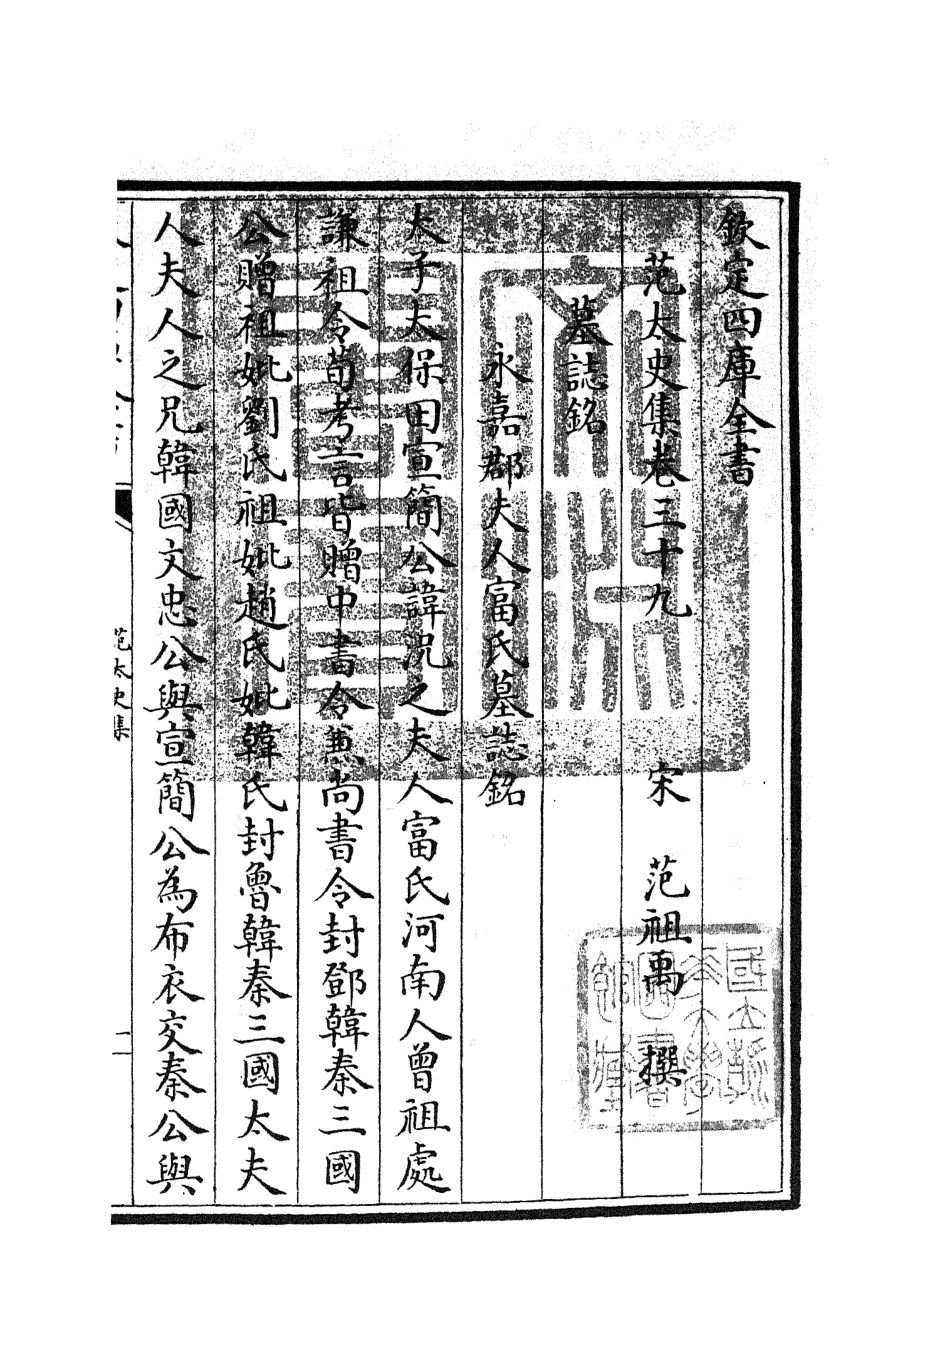 欽定四庫全書
范太史集卷三十九　宋　范祖禹　撰
墓誌銘
永嘉郡夫人富氏墓誌銘
太子太保田宣簡公諱況之夫人富氏河南人曾祖處
謙祖令荀考言皆贈中書令兼尚書令封鄧韓秦三國
公贈祖妣劉氏祖妣趙氏妣韓氏封魯韓秦三國太夫
人夫人之兄韓國文忠公與宣簡公為布衣交秦公與
范太史集